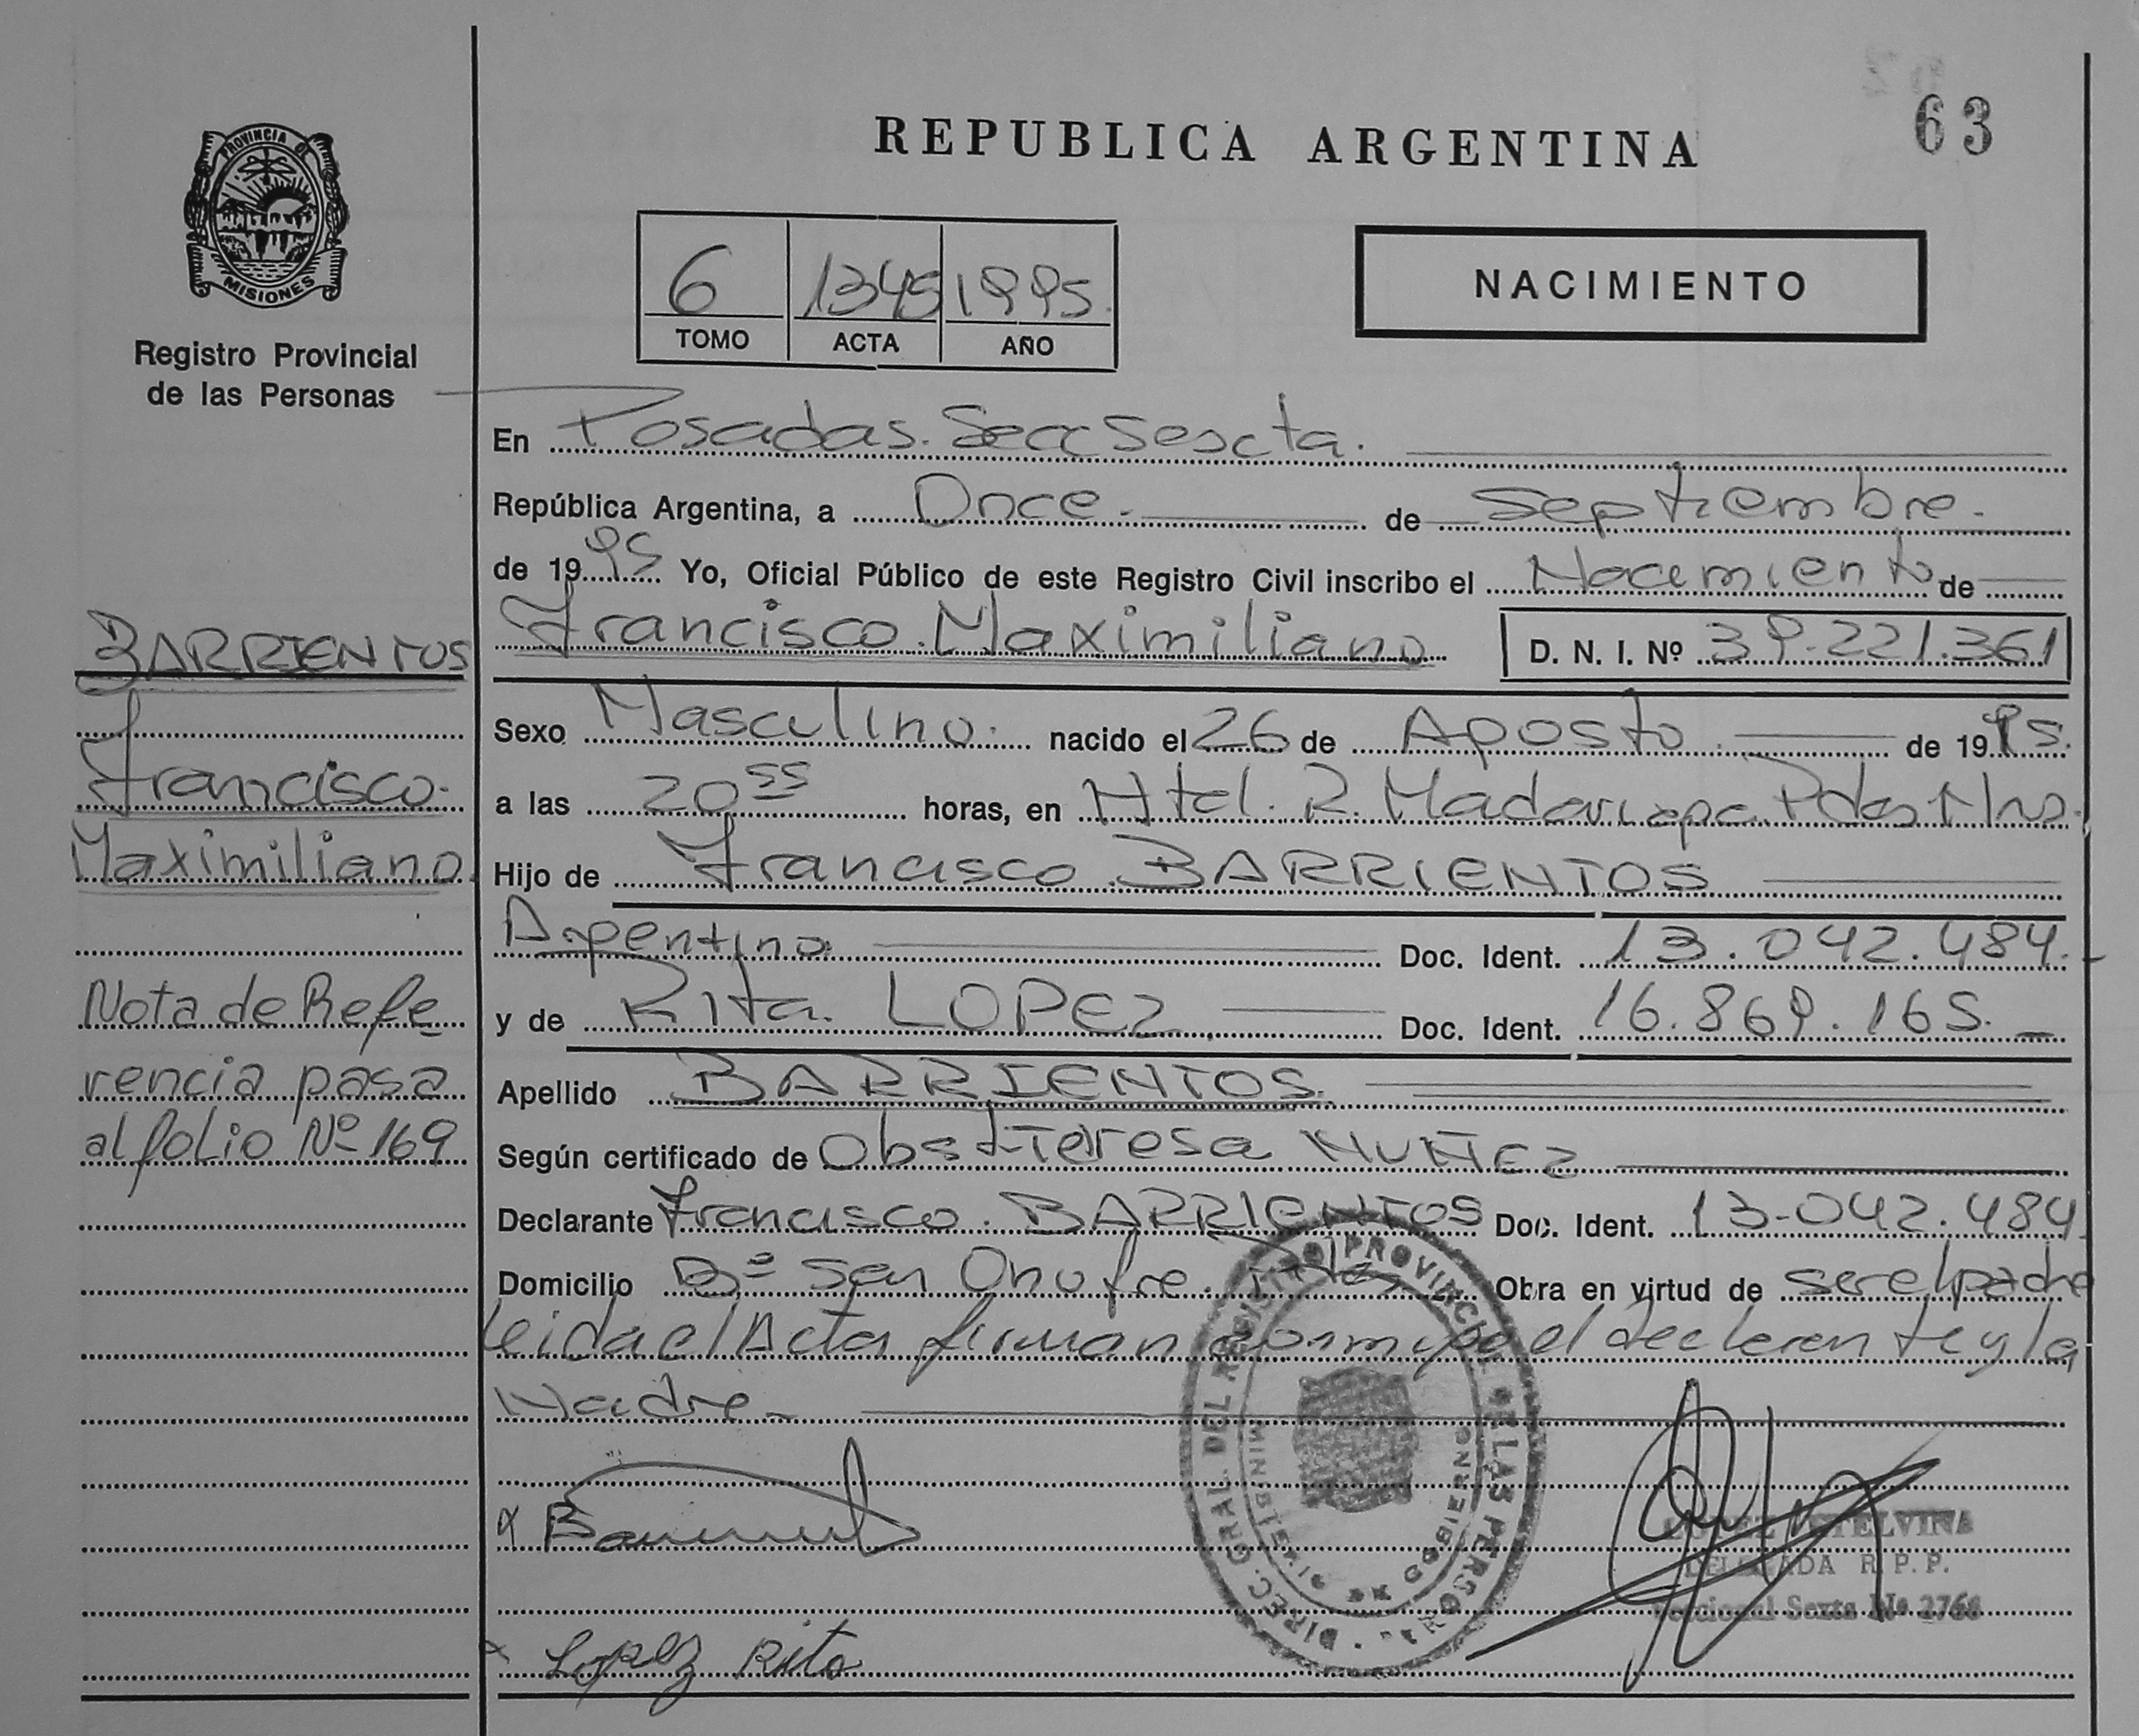 63
REPUBLICA ARGENTINA
PROVINCIA DE
MISIONES
Registro Provincial
de las Personas
6 1345 1995.
TOMO ACTA AÑO
NACIMIENTO
En Posadas. Secc Sexcta.
República Argentina, a Once. de Septiembre.
de 1995 Yo, Oficial Público de este Registro Civil inscribo el Nacimiento de
Francisco. Maximiliano D. N. I. Nº 39.221.361
Sexo Masculino. nacido el 26 de Agosto de 1995.
a las 20 55 horas, en Htal. R. Madariaga. Pdas Mns.
Hijo de Francisco BARRIENTOS
Argentino Doc. Ident. 13.042.484.
y de Rita. LOPEZ Doc. Ident. 16.869.165.
Apellido BARRIENTOS.
Según certificado de Obst Teresa NUÑEZ
Declarante Francisco. BARRIENTOS Doc. Ident. 13-042.484
Domicilio Bº San Onofre. Obra en virtud de ser el padre
leida el Acta firman conmigo el declarante y la
Madre
BARRIENTOS
Francisco.
Maximiliano.
Nota de Refe
rencia pasa
al folio Nº 169
Lopez Rita
DIREC. GRAL. DEL REGISTRO PROVINCIAL DE LAS PERSONAS
GOBIERNO
DELEGADA R. P. P.
Seccional Sexta Nº 2766